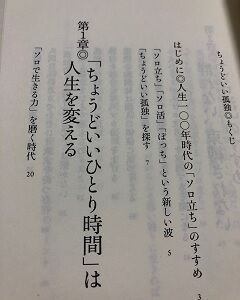 ちょうどいい孤独◎もくじ
はじめに◎人生一〇〇年時代の「ソロ立ち」のすすめ 3
「ソロ立ち」「ソロ活」「ぼっち」という新しい波 5
「ちょうどいい孤独」を探す 7
第1章◎「ちょうどいいひとり時間」は
人生を変える
「ソロで生きる力」を磨く時代 20